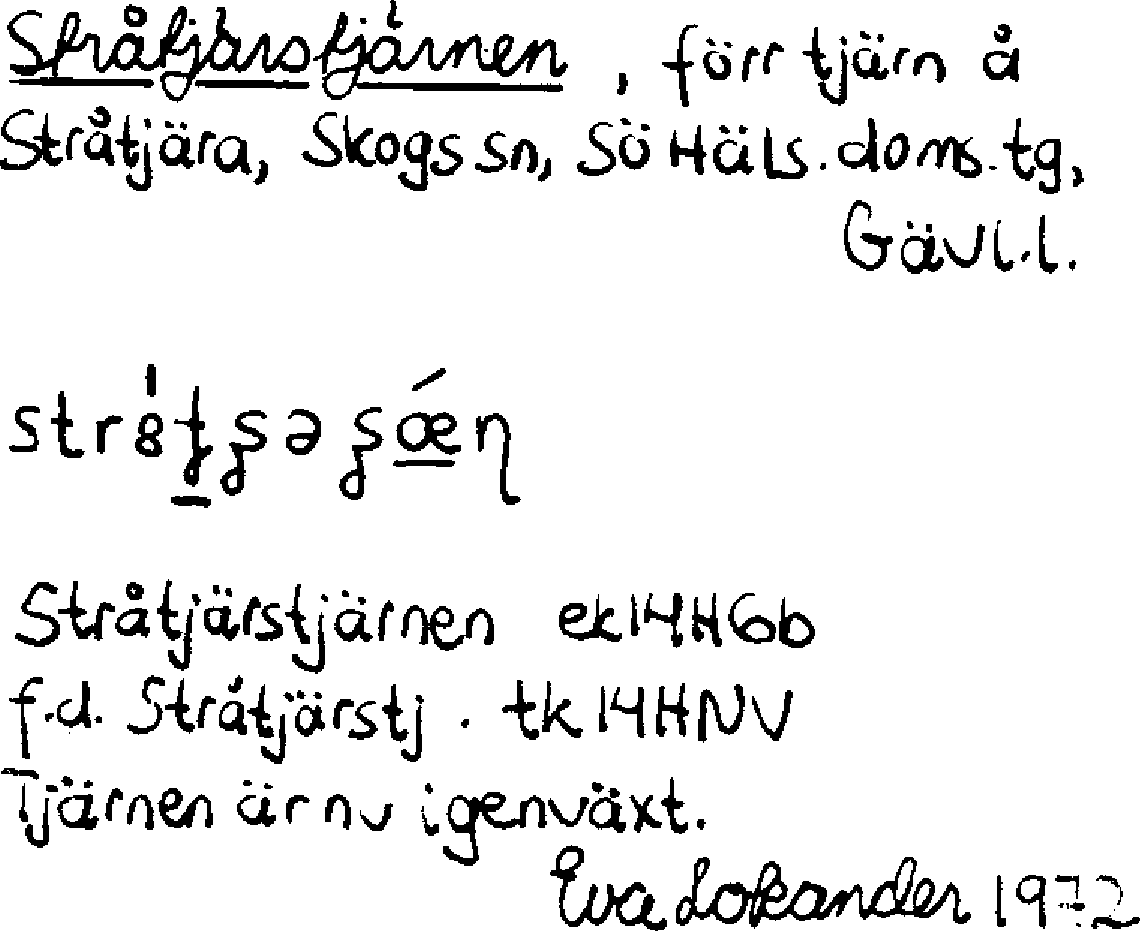 Stråtjärstjärnen, förr tjärn å
Stråtjära, Skogs sn, SöHäls.doms.tg,
Gävl.l.
Stråtjärstjärnen ek14H6b
f.d. Stråtjärstj. tk 14HNV
Tjärnen är nu igenväxt.
Eva Lokander 1972